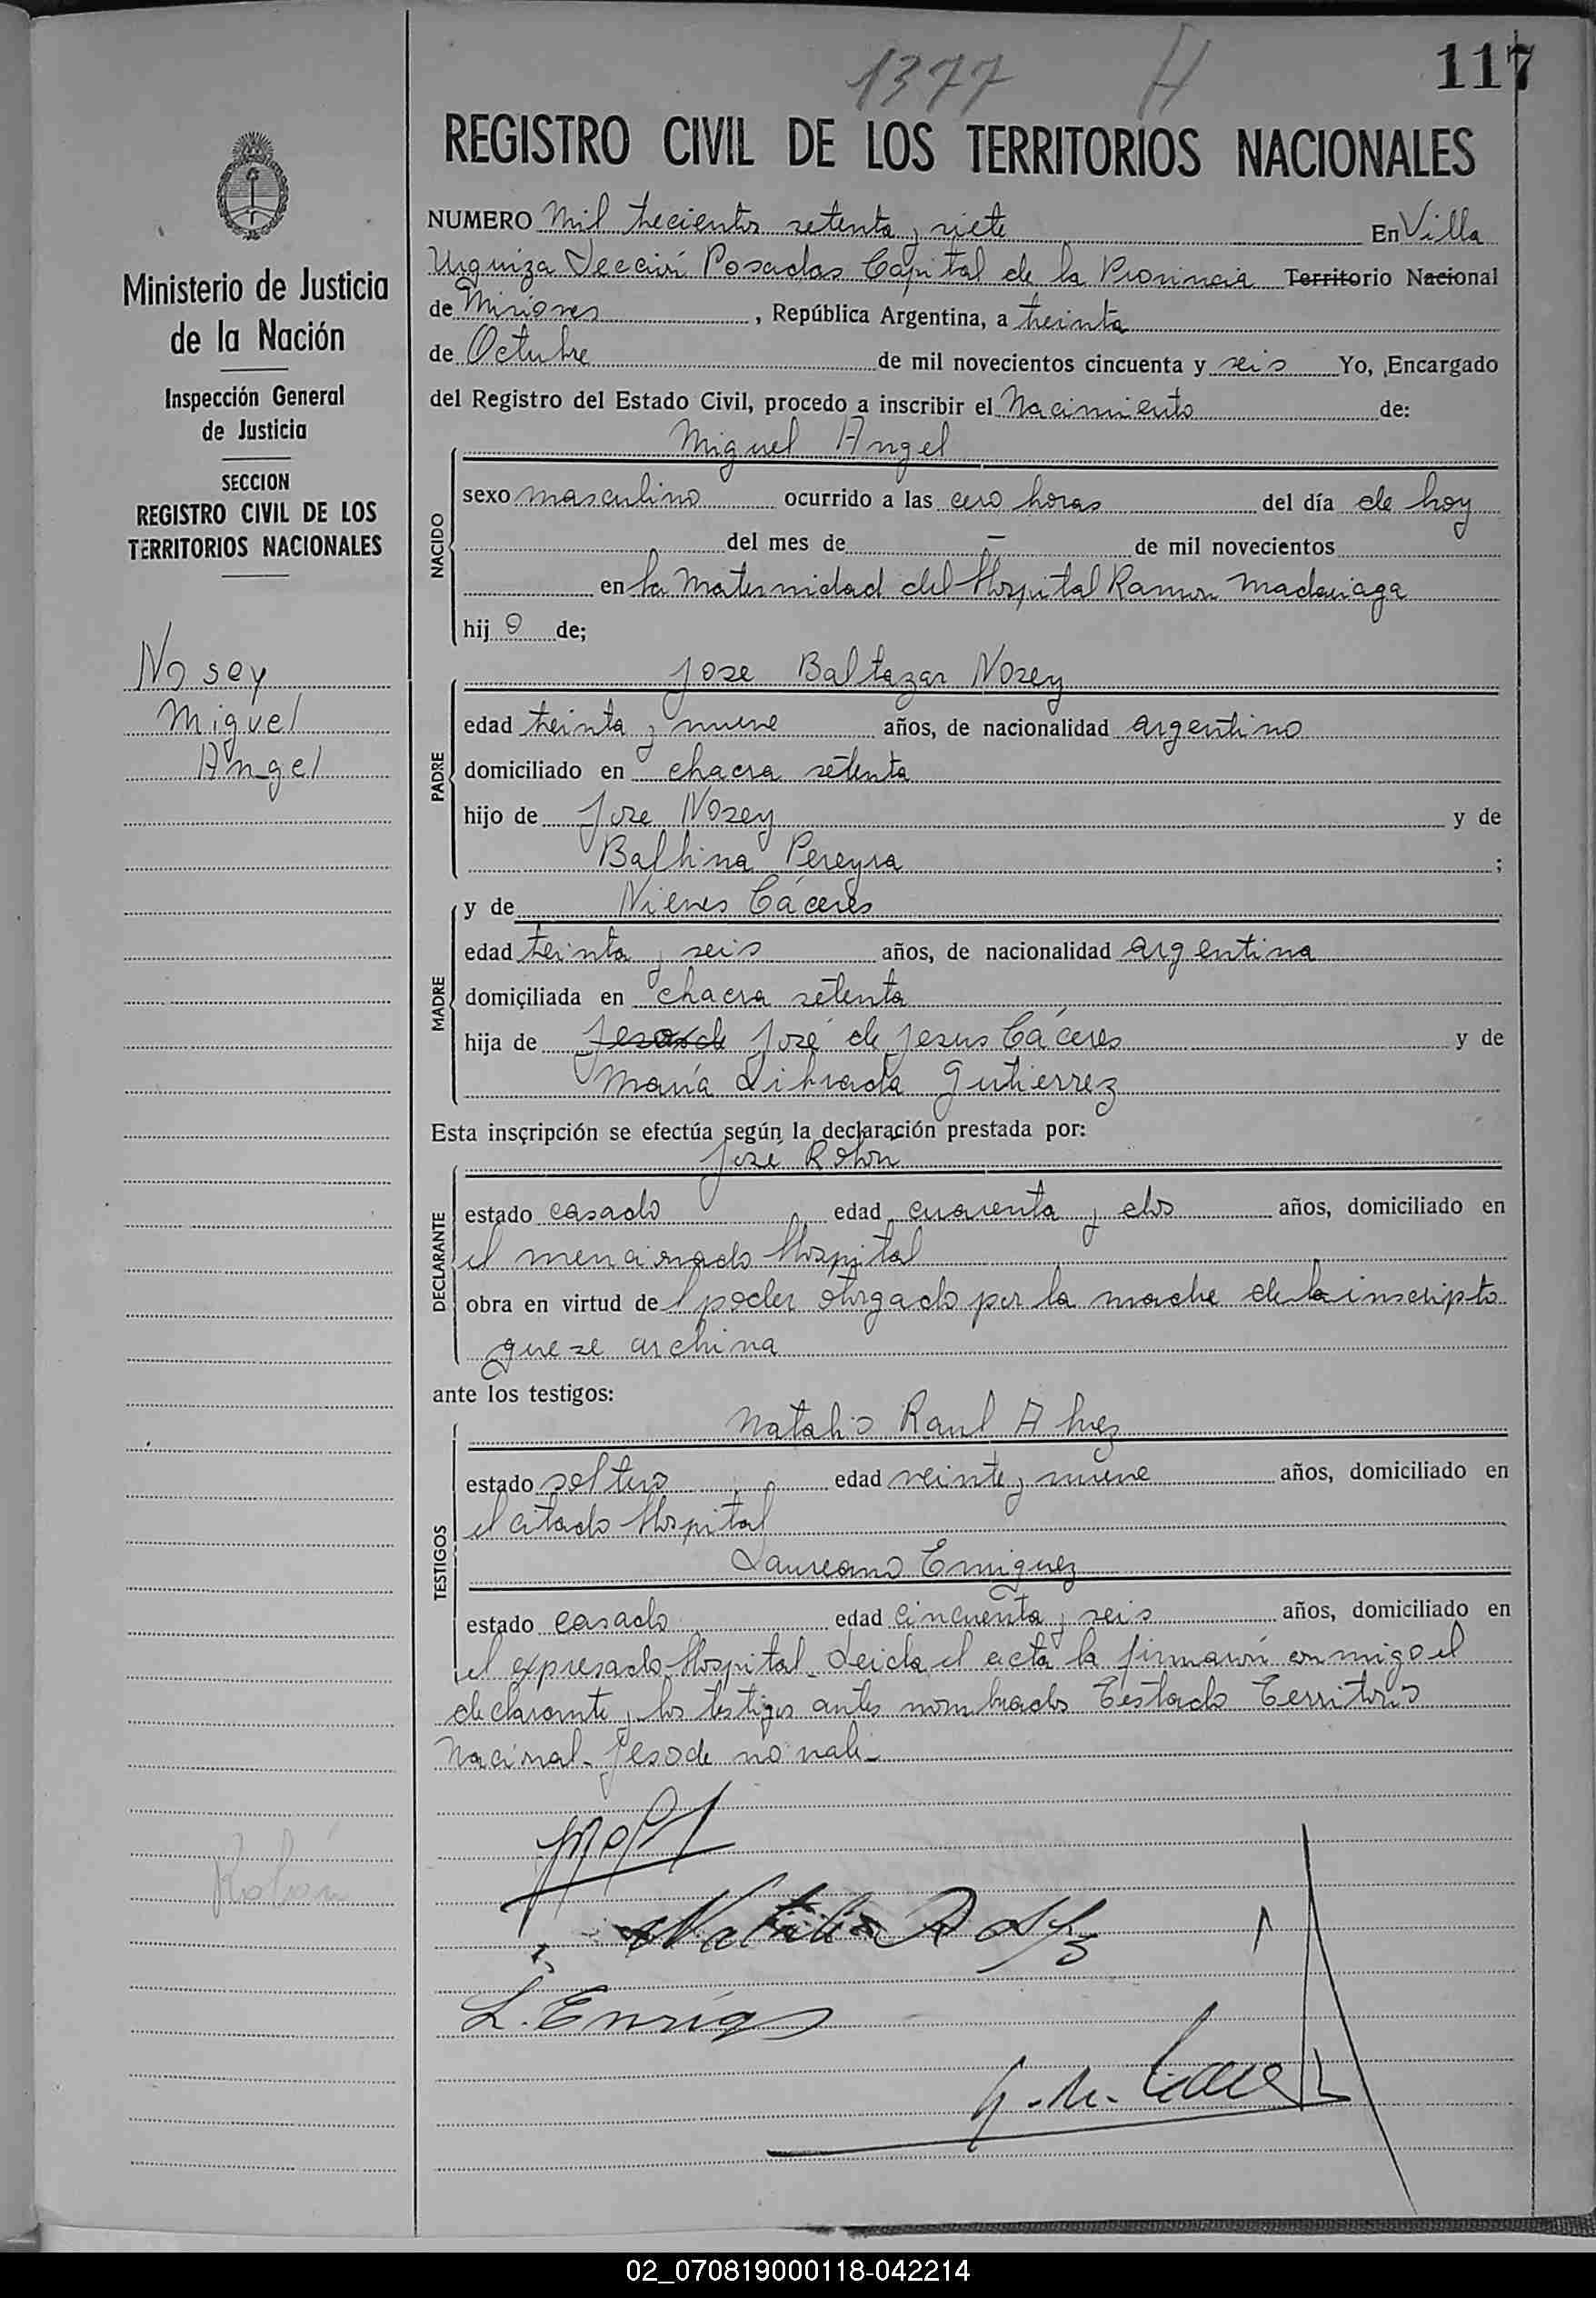 1377 H 117
REGISTRO CIVIL DE LOS TERRITORIOS NACIONALES
Ministerio de Justicia
de la Nación
Inspección General
de Justicia
SECCION
REGISTRO CIVIL DE LOS
TERRITORIOS NACIONALES
Nosey
Miguel
Angel
Rolón
NUMERO Mil trecientos setenta y siete En Villa
Urquiza Sección Posadas Capital de la Provincia Territorio Nacional
de Misiones, República Argentina, a treinta
de Octubre de mil novecientos cincuenta y seis Yo, Encargado
del Registro del Estado Civil, procedo a inscribir el Nacimiento de:
NACIDO
Miguel Angel
sexo masculino ocurrido a las cero horas del día de hoy
del mes de — de mil novecientos
en la Maternidad del Hospital Ramon Madariaga
hijo de;
PADRE
Jose Baltazar Nosey
edad treinta y nueve años, de nacionalidad argentino
domiciliado en chacra setenta
hijo de Jose Nosey y de
Balbina Pereyra ;
MADRE
y de Nieves Cáceres
edad treinta y seis años, de nacionalidad argentina
domiciliada en chacra setenta
hija de Jesode José de Jesus Cáceres y de
María Librada Gutierrez
Esta inscripción se efectúa según la declaración prestada por:
DECLARANTE
José Rolon
estado casado edad cuarenta y dos años, domiciliado en
el mencionado Hospital
obra en virtud del poder otorgado por la madre de la inscripto
que se archiva
ante los testigos:
TESTIGOS
Natalio Raul
estado soltero edad veinte y nueve años, domiciliado en
el citado Hospital
Laureano Enriquez
estado casado edad cincuenta y seis años, domiciliado en
el expresado Hospital. Leida el acta la firmaron conmigo el
declarante y los testigos antes nombrados Testado Territorio
Nacional - Jesode no vale -
L. Enriqz
02_070819000118-042214